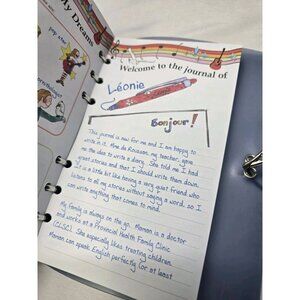 My Dreams
pop star
Welcome to the journal of
Léonie
Bonjour!
This journal is new for me and I am happy to
write in it. Mme de Rovison, my teacher, gave
me the idea to write a diary. She told me I had
great stories and that I should write them down.
It is a little bit like having a very quiet friend who
listens to all my stories without saying a word, so I
can write anything that comes to mind.
My family is always on the go. Maman is a doctor
and works at a Provincial Health Family Clinic
(CLSC). She especially likes treating children.
Maman can speak English perfectly (or at least